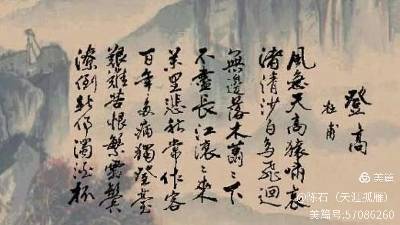 登高
杜甫
風急天高猿嘯哀
渚清沙白鳥飛迴
無邊落木蕭〻下
不盡長江滾〻來
萬里悲秋常作客
百年多病獨登臺
艱難苦恨繁霜鬢
潦倒新停濁酒杯
美篇
@陈石（天涯孤雁）
美篇号:57086260